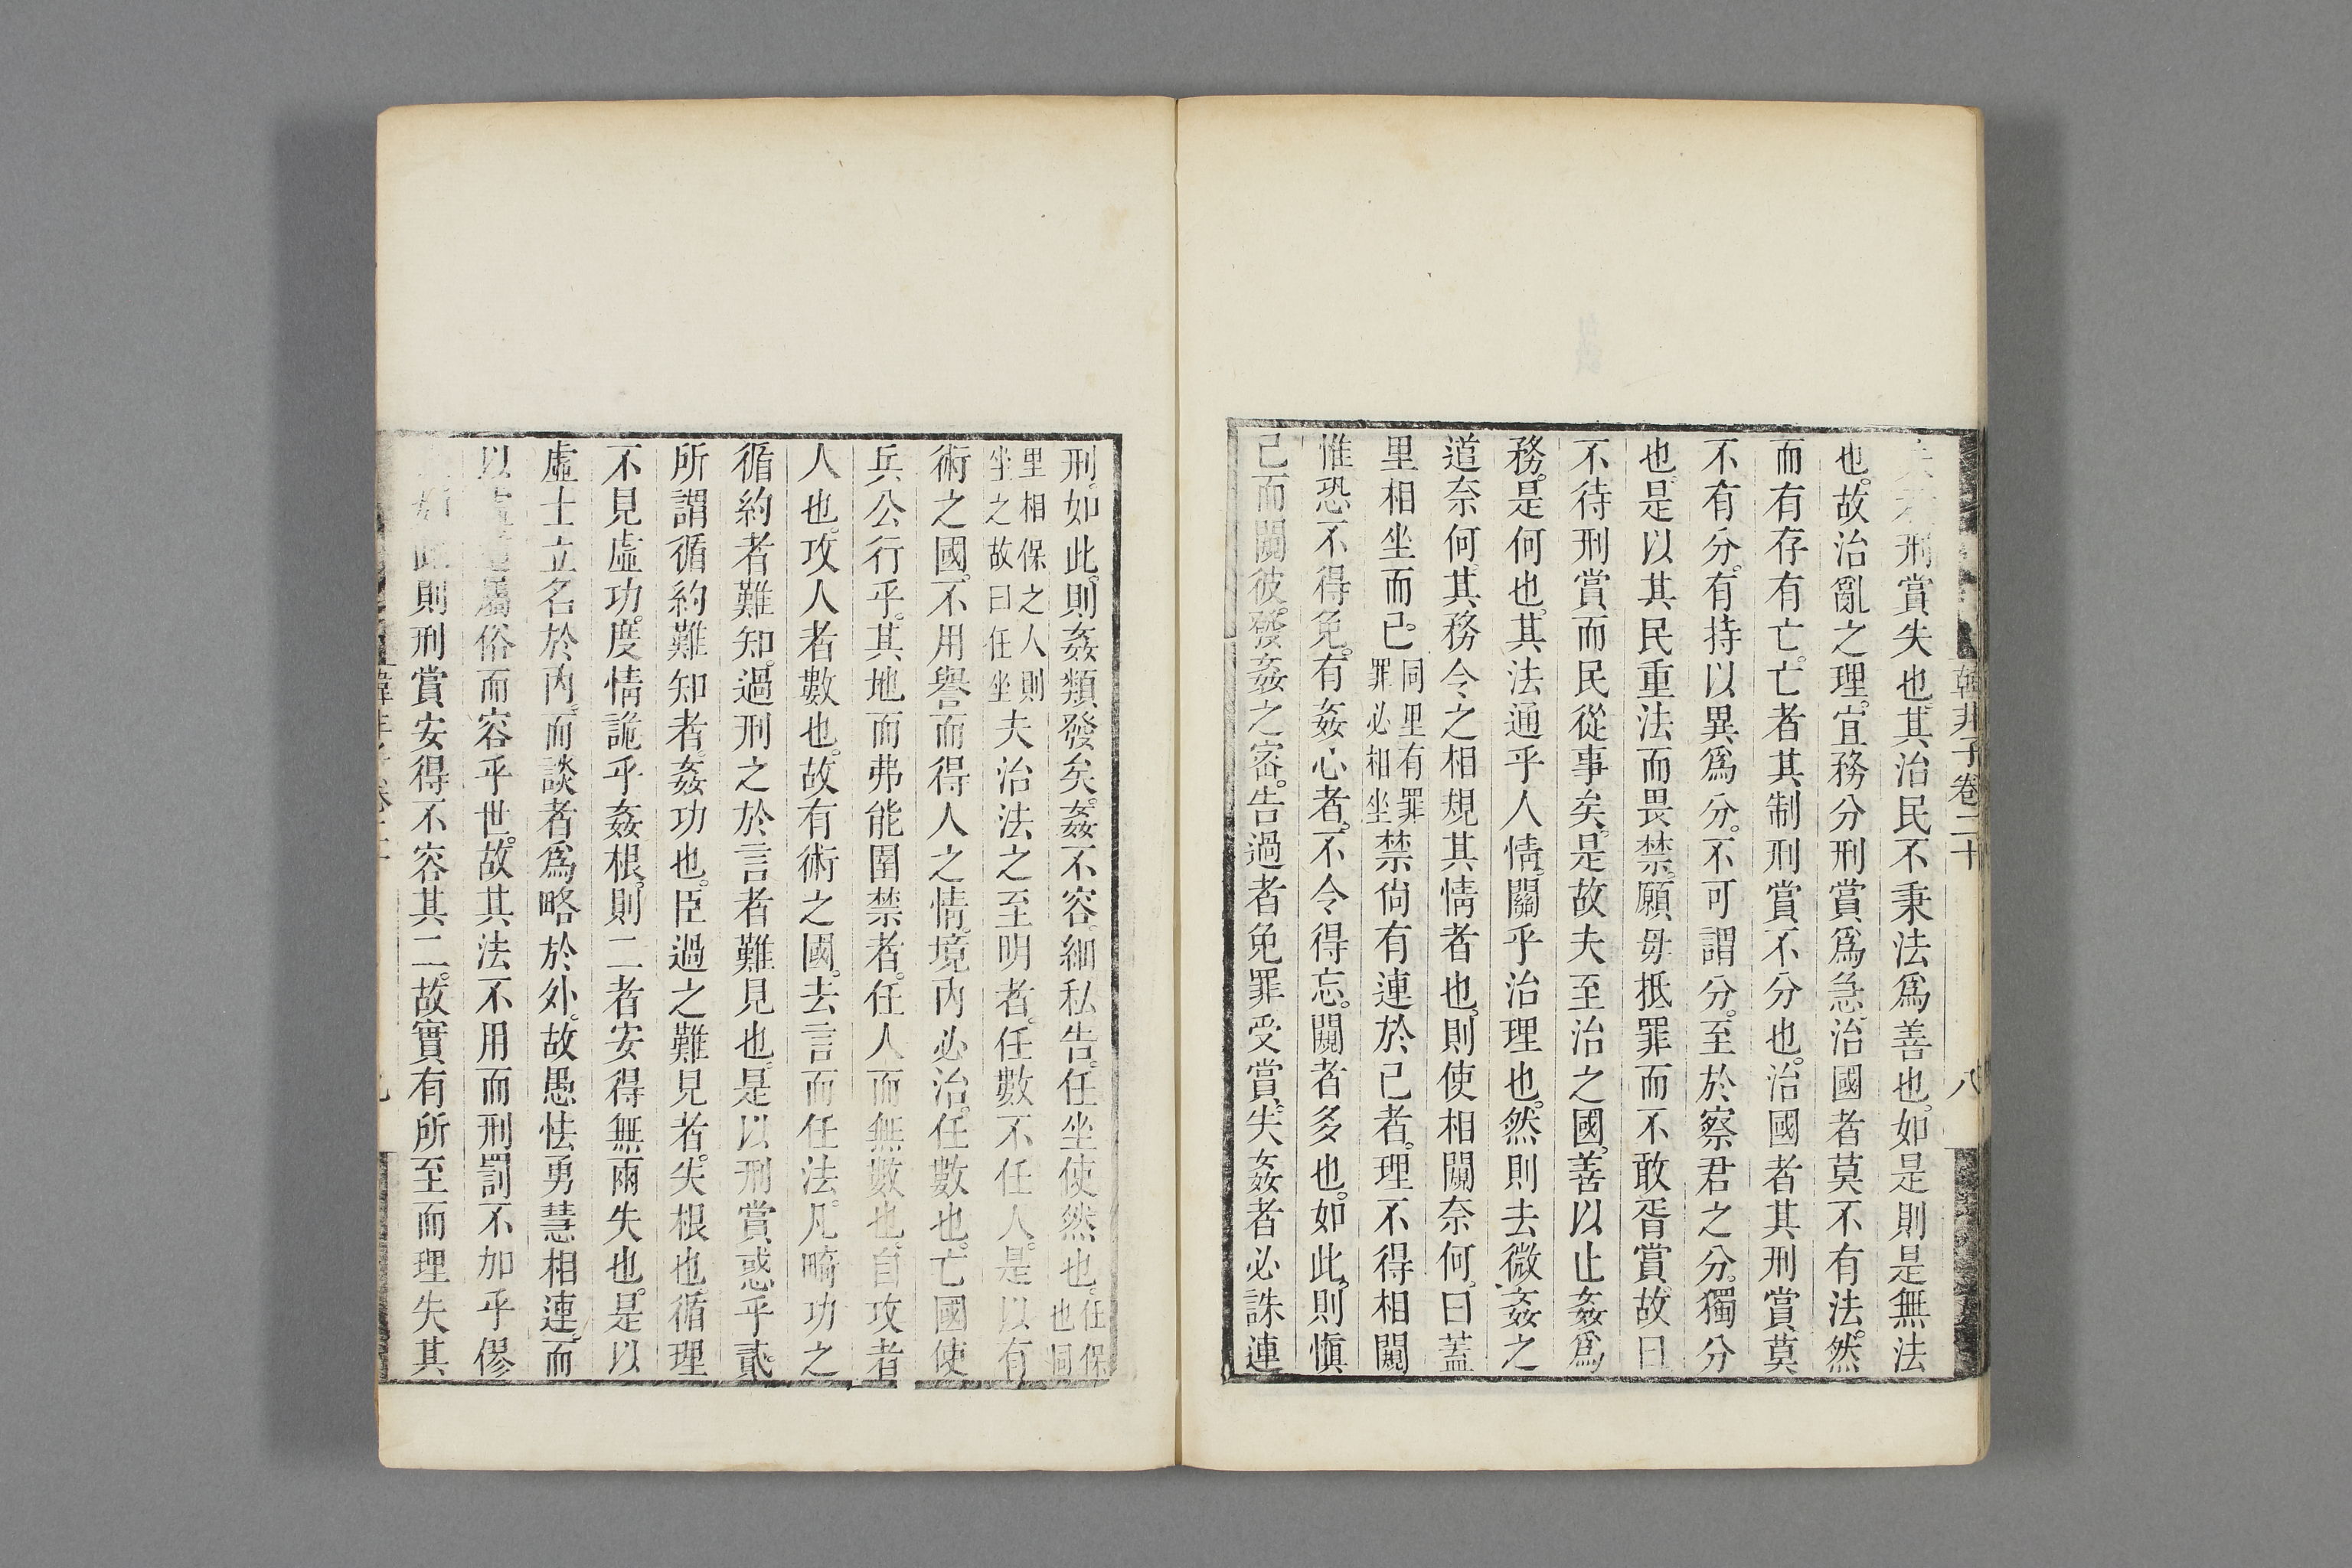 韓非子卷二十
八
刑賞失也其治民不秉法為善也如是則是無法
也。故治亂之理。宜務分刑賞為急。治國者莫不有法。然
而有存有亡。亡者其制刑賞不分也。治國者其刑賞莫
不有分。有持以異為分。不可謂分。至於察君之分。獨分
也。是以其民重法而畏禁。願毋抵罪而不敢胥賞。故曰
不待刑賞而民從事矣。是故夫至治之國。善以止姦為
務。是何也。其法通乎人情。關乎治理也。然則去微姦之
道奈何。其務令之相規其情者也。則使相闚奈何。曰蓋
里相坐而已。同里有罪罪必相坐禁尚有連於己者。理不得相闚
惟恐不得免。有姦心者。不令得忘。闚者多也。如此。則慎
己而闚彼。發姦之密。告過者免罪受賞。失姦者必誅連
刑。如此。則姦類發矣。姦不容細私告。任坐使然也。任保也同
里相保之人則坐之故曰任坐夫治法之至明者。任數不任人。是以有
術之國。不用譽而得人之情。境內必治。任數也。亡國使
兵公行乎。其地而弗能圉禁者。任人而無數也。自攻者
人也。攻人者數也。故有術之國。去言而任法。凡畸功之
循約者難知。過刑之於言者難見也。是以刑賞惑乎貳。
所謂循約難知者。姦功也。臣過之難見者。失根也。循理
不見虛功。度情詭乎姦根。則二者安得無兩失也。是以
虛士立名於內。而談者為略於外。故愚怯勇慧相連。而
以屬俗而容乎世。故其法不用而刑罰不加乎僇
則刑賞安得不容其二。故實有所至而理失其